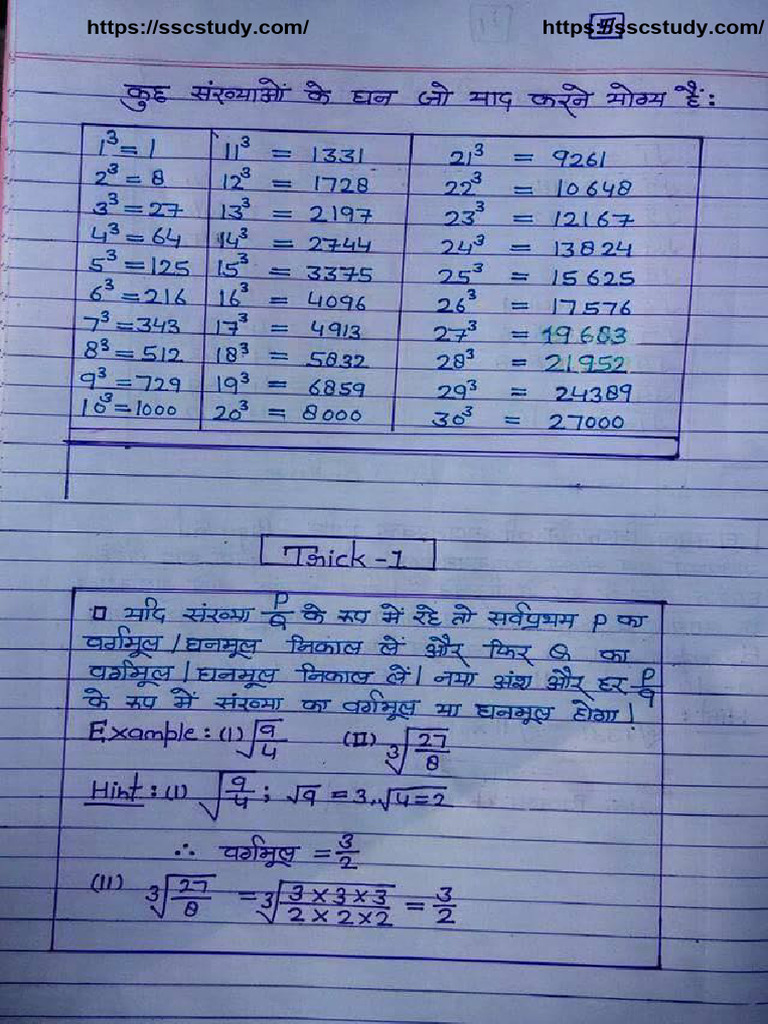 https://sscstudy.com/ https://sscstudy.com/
कुछ संख्याओं के घन जो याद करने योग्य हैं:
1³ = 1 11³ = 1331 21³ = 9261
2³ = 8 12³ = 1728 22³ = 10648
3³ = 27 13³ = 2197 23³ = 12167
4³ = 64 14³ = 2744 24³ = 13824
5³ = 125 15³ = 3375 25³ = 15625
6³ = 216 16³ = 4096 26³ = 17576
7³ = 343 17³ = 4913 27³ = 19683
8³ = 512 18³ = 5832 28³ = 21952
9³ = 729 19³ = 6859 29³ = 24389
10³ = 1000 20³ = 8000 30³ = 27000
Trick - 1
यदि संख्या P/Q के रूप में रहे तो सर्वप्रथम P का
वर्गमूल / घनमूल निकाल लें और फिर Q का
वर्गमूल / घनमूल निकाल लें। नया अंश और हर P/q
के रूप में संख्या का वर्गमूल या घनमूल होगा!
Example: (I) √9/4 (II) ³√27/8
Hint: (I) √9/4 ; √9 = 3, √4=2
∴ वर्गमूल = 3/2
(II) ³√27/8 = ³√3×3×3/2×2×2 = 3/2